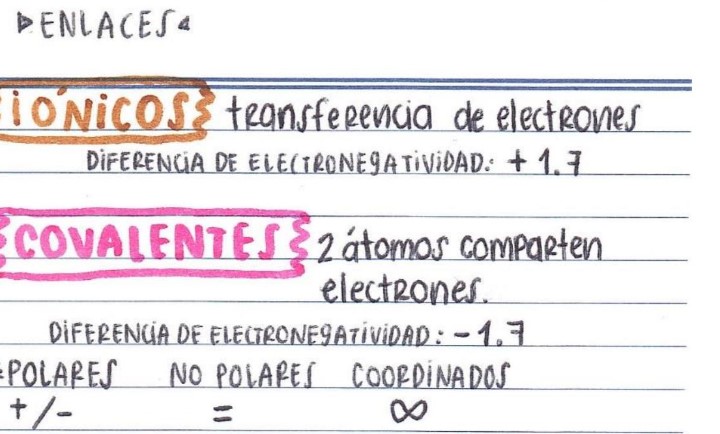 ▹ENLACES◃
IÓNICOS transferencia de electrones
DIFERENCIA DE ELECTRONEGATIVIDAD: + 1.7
COVALENTES 2 átomos comparten
electrones.
DIFERENCIA DE ELECTRONEGATIVIDAD: - 1.7
POLARES NO POLARES COORDINADOS
+/- = ∞